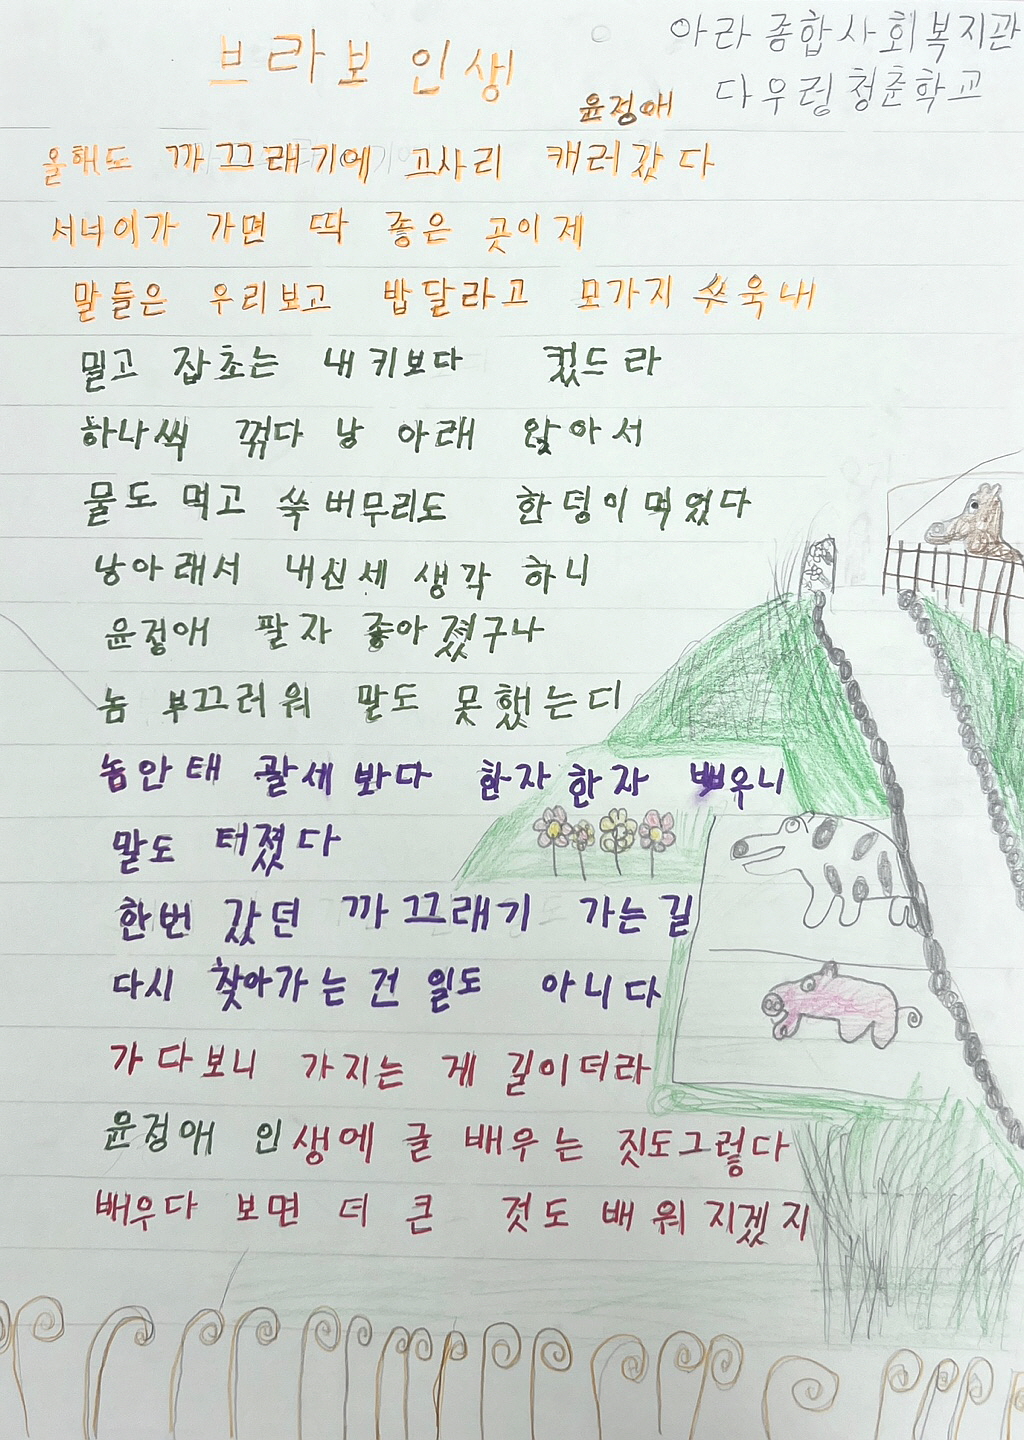 브라보 인생
아라종합사회복지관
다우렁청춘학교
윤정애
올해도 까끄래기에 고사리 캐러갔다
서너이가 가면 딱 좋은 곳이제
말들은 우리보고 밥달라고 모가지 쑤욱내
밀고 잡초는 내키보다 컸드라
하나씩 꺾다 낭 아래 앉아서
물도 먹고 쑥버무리도 한덩이먹었다
낭아래서 내신세 생각 하니
윤정애 팔자 좋아졌구나
놈 부끄러워 말도 못했는디
놈안태 괄세 봤다 한자한자 빼우니
말도 터졌다
한번 갔던 까끄래기 가는길
다시 찾아가는 건 일도 아니다
가다보니 가지는 게 길이더라
윤정애 인생에 글 배우는 짓도그렇다
배우다 보면 더 큰 것도 배워지겠지